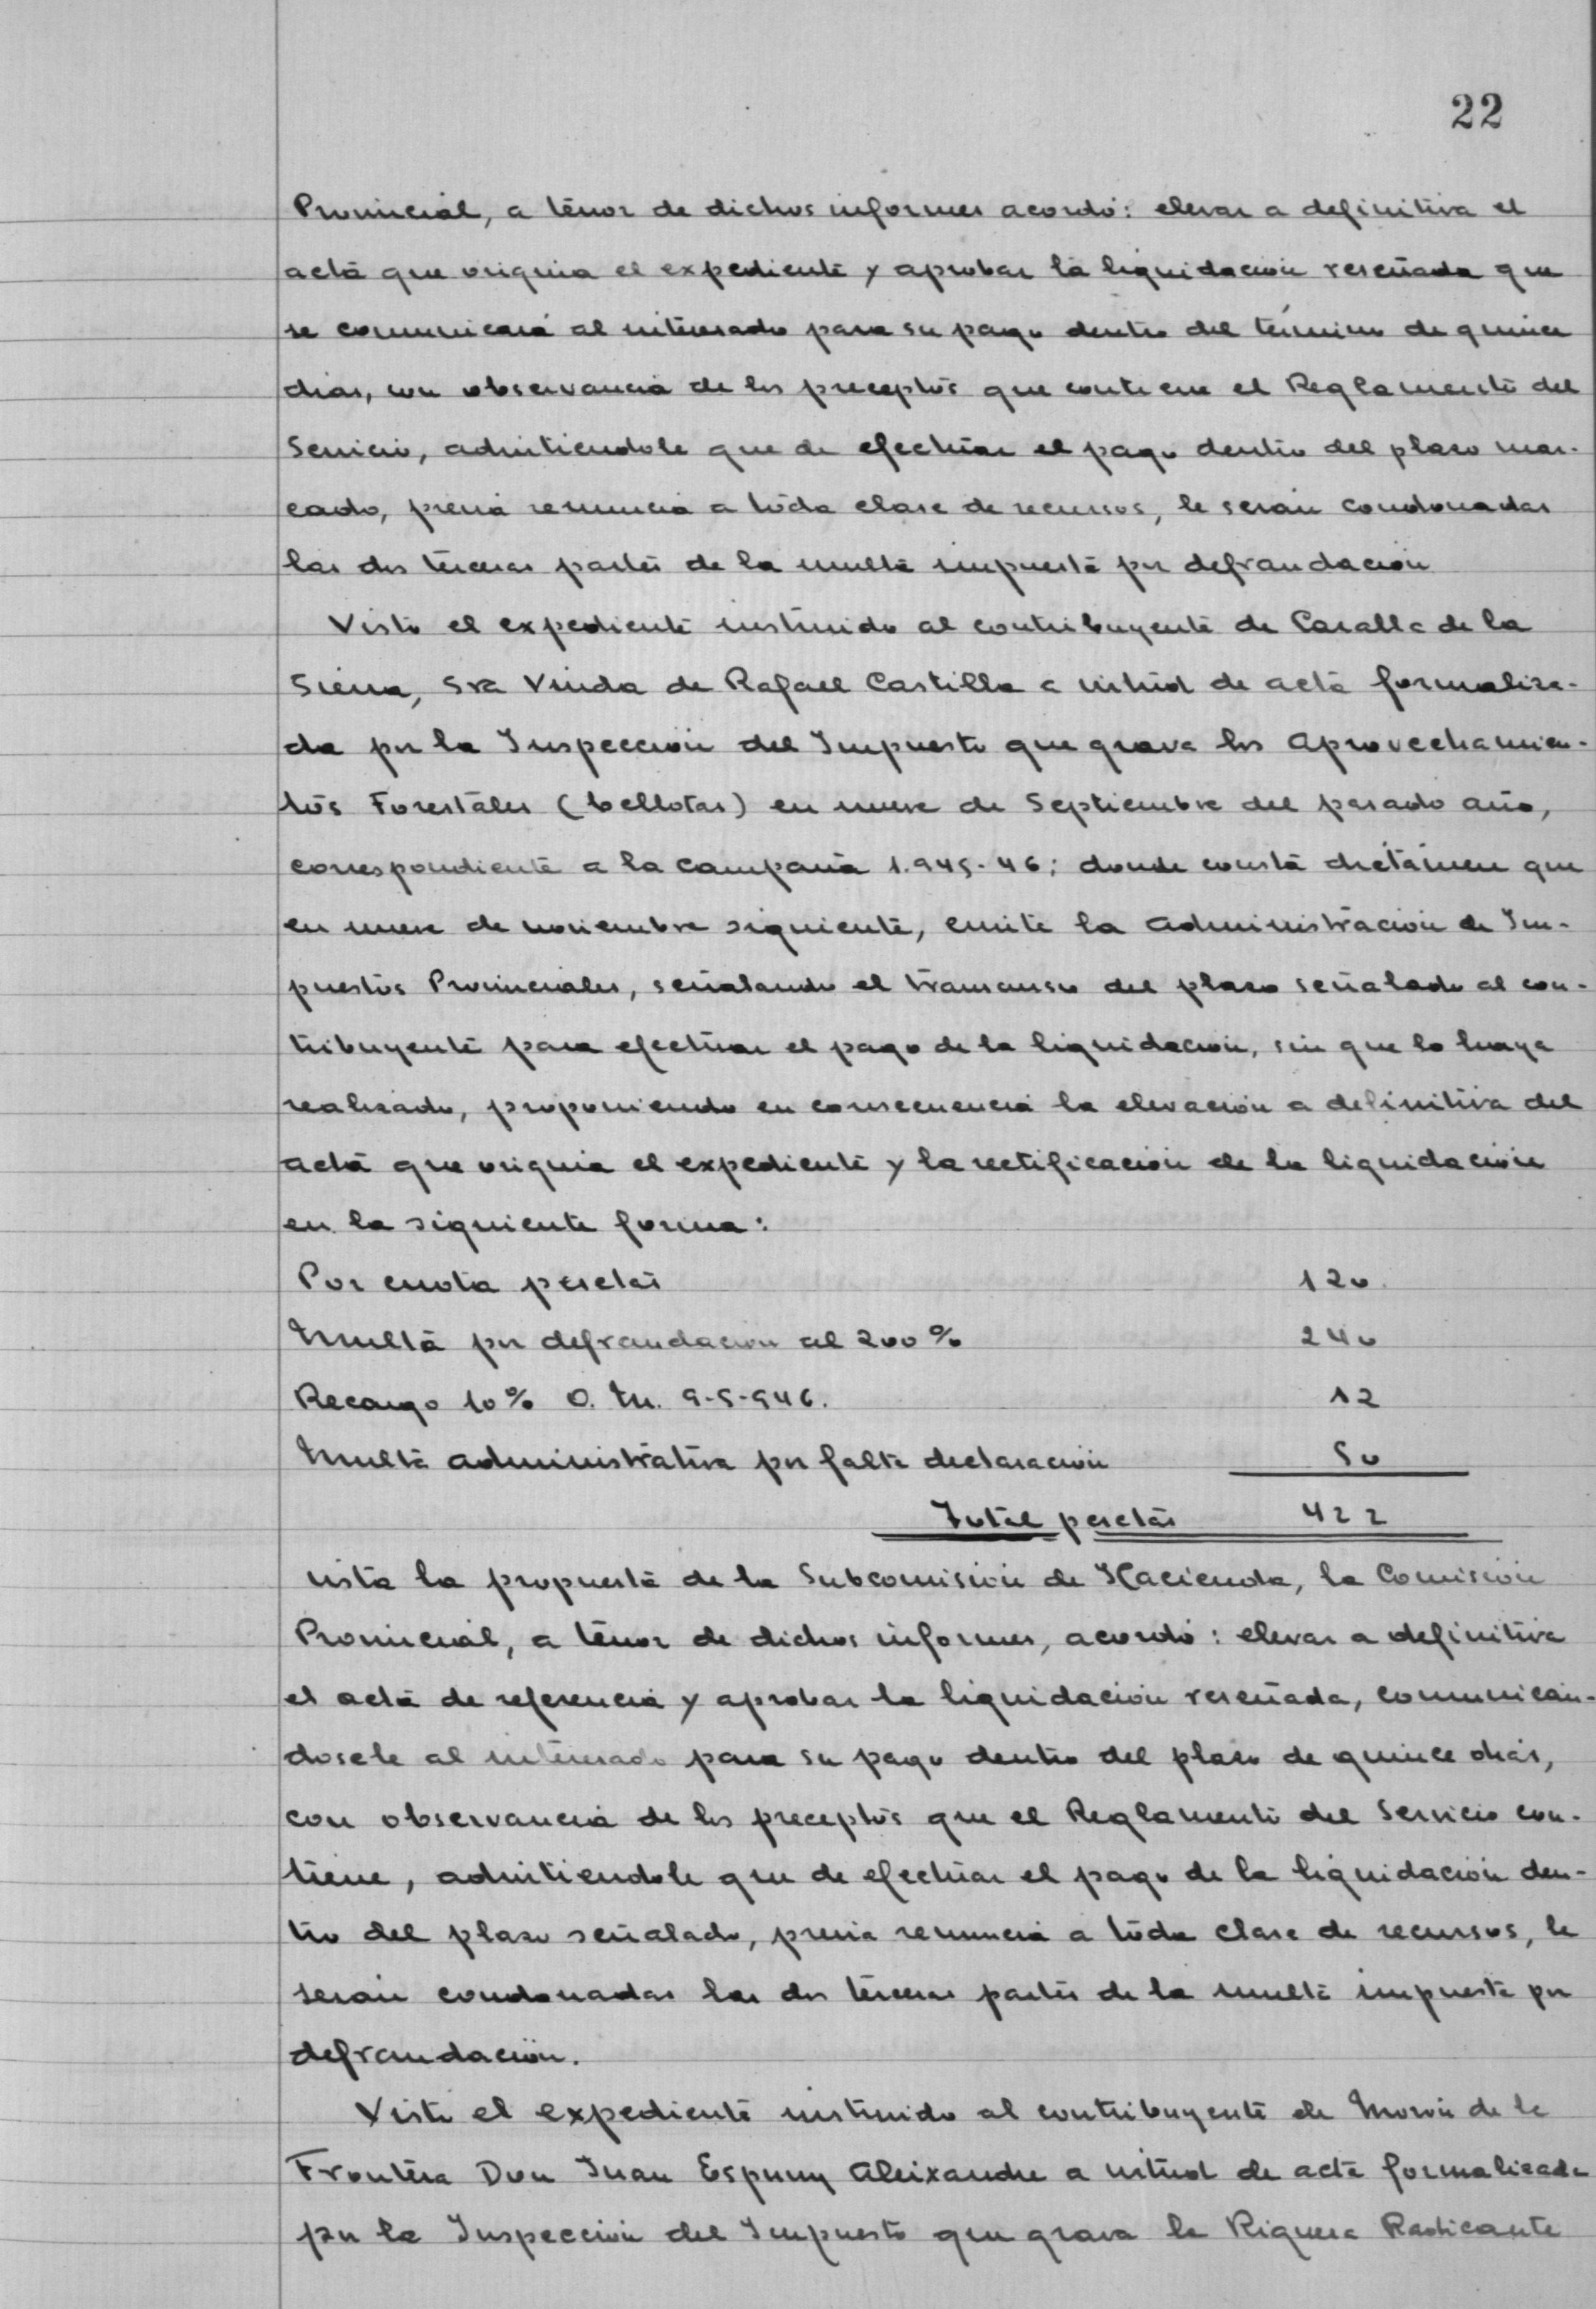 22
Provincial, a tenor de dichos informes acordó: elevar a definitiva el
acta que origina el expediente y aprobar la liquidación reseñada que
se comunicará al interesado para su pago dentro del término de quince
dias, con observancia de los preceptos que contiene el Reglamento del
Servicio, admitiendole que de efectuar el pago dentro del plazo mar-
cado, previa renuncia a toda clase de recursos, le serán condonadas
las dos terceras partes de la multa impuesta por defraudación
Visto el expediente instruido al contribuyente de Cazalla de la
Sierra, Sra Viuda de Rafael Castilla a virtud de acta formaliza-
da por la Inspección del Impuesto que grava los Aprovechamien-
tos Forestales (bellotas) en nueve de Septiembre del pasado año,
correspondiente a la campaña 1.945-46; donde consta dictámen que
en nueve de noviembre siguiente, emite la Administración de Im-
puestos Provinciales, señalando el transcurso del plazo señalado al con-
tribuyente para efectuar el pago de la liquidación, sin que lo haya
realizado, proponiendo en consecuencia la elevación a definitiva del
acta que origina el expediente y la rectificación de la liquidación
en la siguiente forma:
Por cuota pesetas 120
Multa por defraudación al 200% 240
Recargo 10% O. M. 9-5-946. 12
Multa administrativa por falta declaración 50
Total pesetas 422
vista la propuesta de la Subcomisión de Hacienda, la Comisión
Provincial, a tenor de dichos informes, acordó: elevar a definitiva
el acta de referencia y aprobar la liquidación reseñada, comunicán-
dosele al interesado para su pago dentro del plazo de quince dias,
con observancia de los preceptos que el Reglamento del Servicio con-
tiene, admitiendole que de efectuar el pago de la liquidación den-
tro del plazo señalado, previa renuncia a toda clase de recursos, le
serán condonadas las dos terceras partes de la multa impuesta por
defraudación.
Visto el expediente instruido al contribuyente de Morón de la
Frontera Don Juan Espuny Aleixandre a virtud de acta formalizada
por la Inspección del Impuesto que grava la Riqueza Radicante